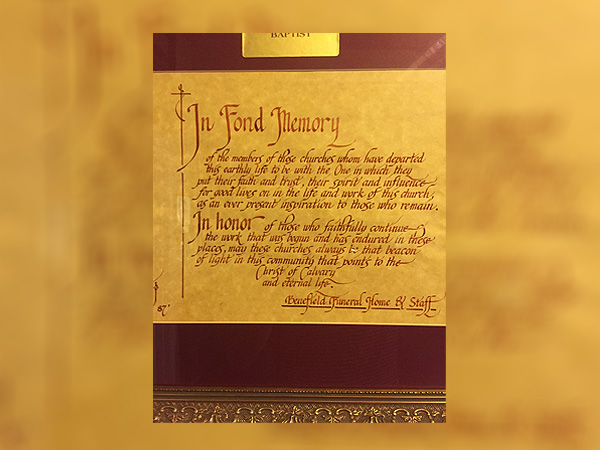 BAPTIST
In Fond Memory
of the members of these churches whom have departed
this earthly life to be with the One in which they
put their faith and trust, their spirit and influence
for good lives on in the life and work of this church,
as an ever present inspiration to those who remain.
In honor of those who faithfully continue
the work that was begun and has endured in these
places, may these churches always be that beacon
of light in this community that points to the
Christ of Calvary
and eternal life.
Benefield Funeral Home & Staff
87'